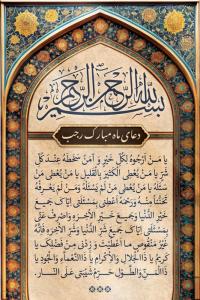 بسم الله الرحمن الرحیم
دعای ماه مبارک رجب
یا مَنْ أَرْجُوهُ لِکُلِّ خَیْرٍ وَ آمَنُ سَخَطَهُ عِنْدَ کُلِّ
شَرٍّ یَا مَنْ یُعْطِی الْکَثِیرَ بِالْقَلِیلِ یَا مَنْ یُعْطِی مَنْ
سَئَلَهُ یَا مَنْ یُعْطِی مَنْ لَمْ یَسْئَلْهُ وَمَنْ لَمْ یَعْرِفْهُ
تَحَنُّناً مِنْهُ وَرَحْمَةً أَعْطِنِی بِمَسْئَلَتِی إِیَّاکَ جَمِیعَ
خَیْرِ الدُّنْیَا وَجَمِیعَ خَیْرِ الْآخِرَةِ وَاصْرِفْ عَنِّی
بِمَسْئَلَتِی إِیَّاکَ جَمِیعَ شَرِّ الدُّنْیَا وَشَرِّ الْآخِرَةِ فَإِنَّهُ
غَیْرُ مَنْقُوصٍ مَا أَعْطَیْتَ وَ زِدْنِی مِنْ فَضْلِکَ یَا
کَرِیمُ یَا ذَا الْجَلَالِ وَالْإِکْرَامِ یَا ذَا النَّعْمَاءِ وَالْجُودِ یَا
ذَا الْمَنِّ وَالطَّوْلِ حَرِّمْ شَیْبَتِی عَلَی النَّارِ